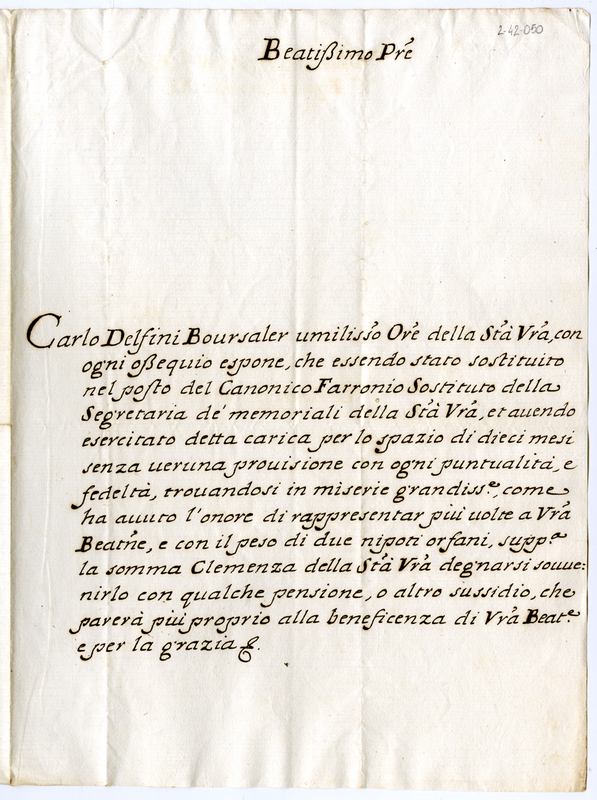 2-42-050
Beatißimo Pr̃e
Carlo Delfini Boursaler umilisso Or̃e della Stà Vrã, con
ogni oßequio espone, che essendo stato sostituito
nel posto del Canonico Farronio Sostituto della
Segretaria de' memoriali della Stà Vrã, et auendo
esercitato detta carica per lo spazio di dieci mesi
senza ueruna prouisione con ogni puntualità, e
fedeltà, trouandosi in miserie grandiss.e, come
ha auuto l'onore di rappresentar più uolte a Vrã
Beatñe, e con il peso di due nipoti orfani, supp.a
la somma Clemenza della Stà Vrã degnarsi souue:
nirlo con qualche pensione, o altro sussidio, che
parerà più proprio alla beneficenza di Vrã Beat.e
e per la grazia &.